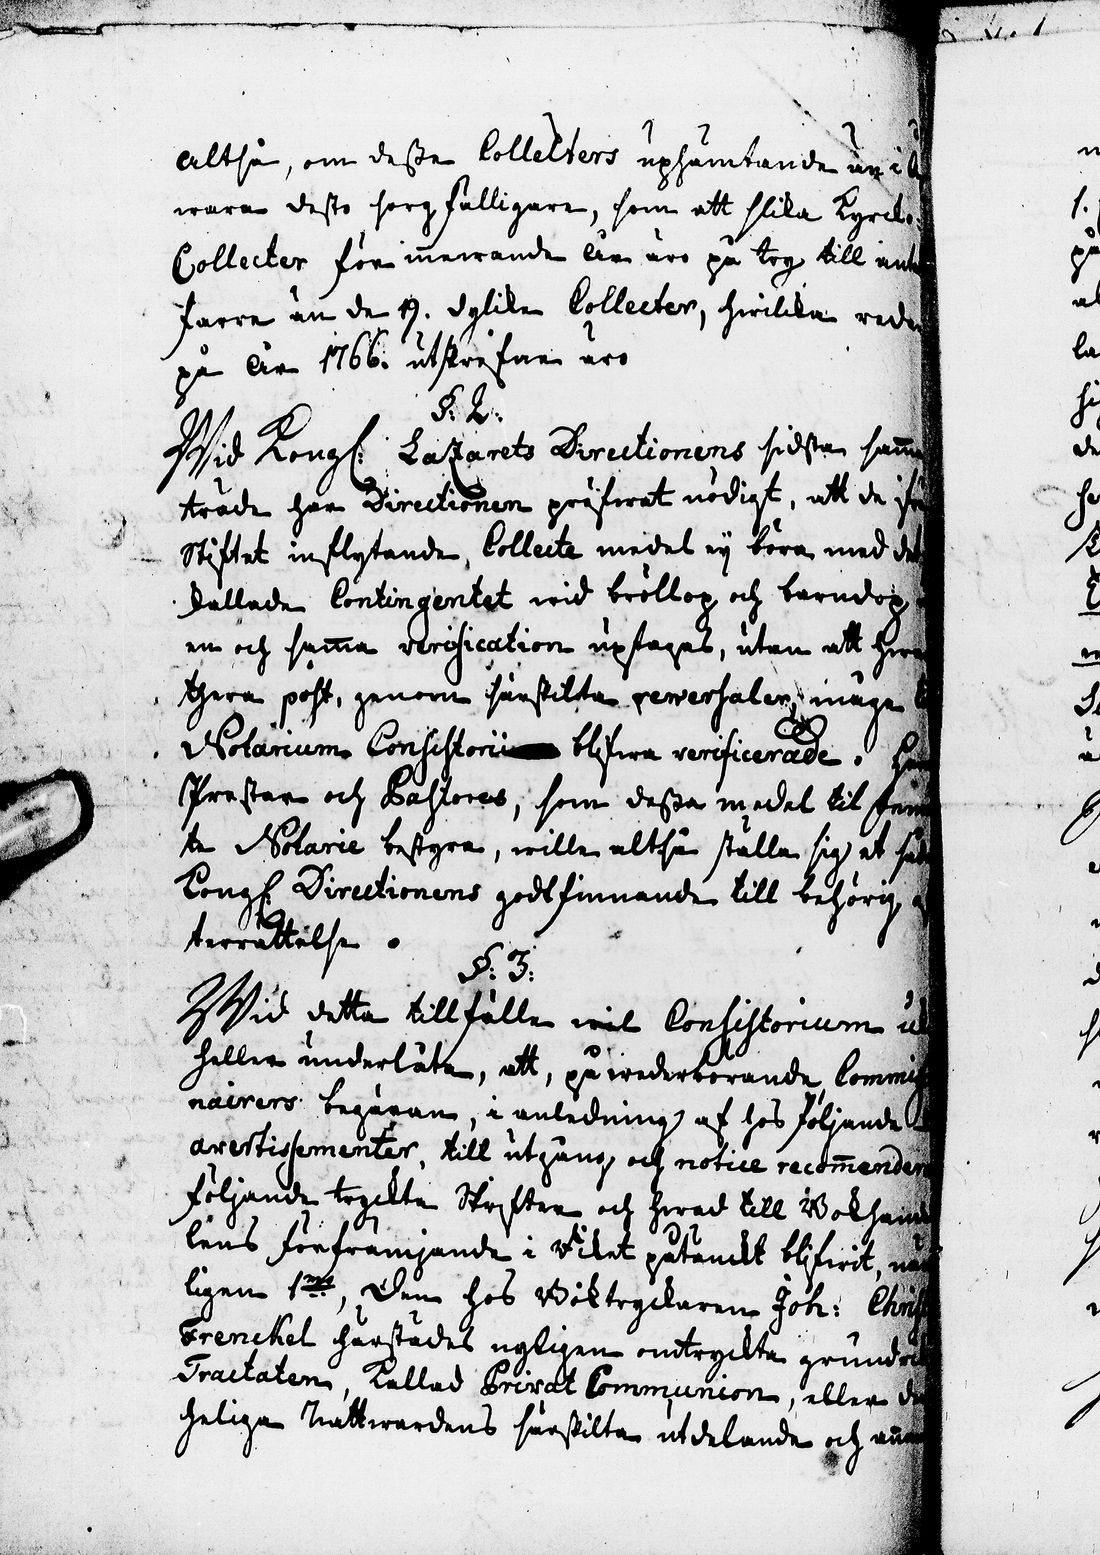 altså, om desse Collecters uphämtande än i
wara desto sorgfälligare, som att slika Kyrcko-
Collecter för innewarande åhr äro på try till
färre än de 19. dylika Collecter, hwilka reda
på åhr 1766. utskrefne äro
§: 2.
Wid Kongl: Lazarets Directionens sidsta samman
träde har Directionen pröfwat nödigt, att de ifrån
Stiftet inflytande Collecte medel ej böra med det
kallade Contingentet wid bröllop och barndop
en och samma verification uptagas, utan att hwar
thera post, genom särskilta rewersaler, måge
Notarium Consistorii blifwa verificerade. Herrar
Præster och Pastores, som dessa medel til
te Notarie bestyra, wille altså ställa sig et såda
Kongl. Directionens godtfinnande till behörig
terrättelse.
§: 3:
Wid detta tillfälle wil Consistorium
heller underlåta, att, på wederbörande Commis
nairers begäran, i anledning af hos följande
avertissementer, till utgång och notice recommendera
följande tryckta Skrifter och hwad till Bokhand
lens förfrämjande i Riket påtänckt blifwit, näm
ligen 1mo, Den hos Boktryckaren Joh: Christ
Frenckel härstädes nyligen omtryckta
Tractaten, Kallad Privat Communion, eller
heliga Nattwardens särskilta utdelande och